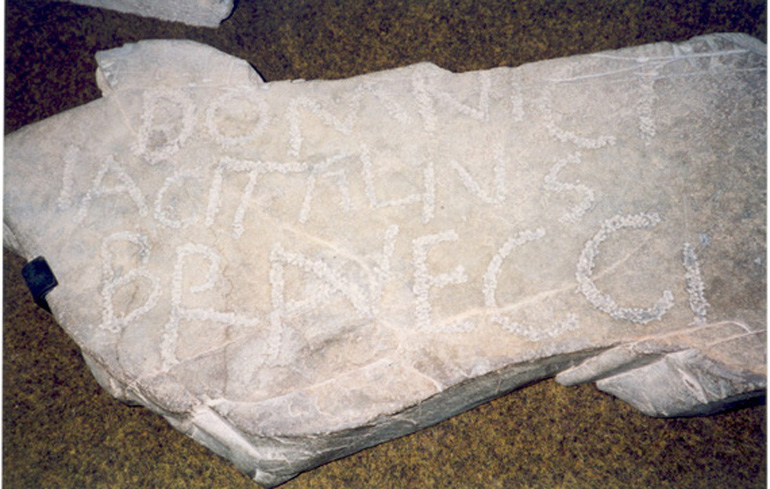 DOMNICI
IACIT FILIVS
BRAVECCI